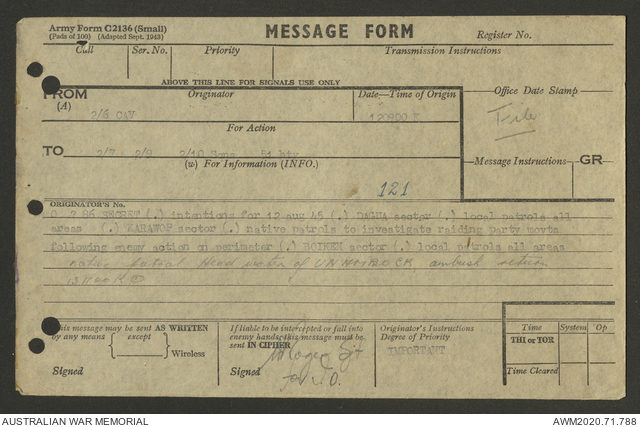 Army Form C2136 (Small)
(Pads of 100) (Adapted Sept. 1943)
MESSAGE FORM
Register No.
Call
Ser. No.
Priority
Transmission Instructions
ABOVE THIS LINE FOR SIGNALS USE ONLY
FROM
(A)
Originator
Date—Time of Origin
Office Date Stamp
2/6 CAV
120800 K
File
For Action
TO
2/7 2/8 2/10 Bns 51 bty
(w) For Information (INFO.)
Message Instructions
GR
121
ORIGINATOR'S No.
O 786 SECRET (.) intentions for 12 aug 45 (.) DAGUA sector (.) local patrols all
areas (.) KARAWOP sector (.) native patrols to investigate raiding party movts
following enemy action on perimeter (.) BOIKEN sector (.) local patrols all areas
native patrol Head water of ambush return
This message may be sent AS WRITTEN
by any means except
Wireless
Signed
If liable to be intercepted or fall into
enemy hands, this message must be
sent IN CIPHER
Signed
Originator's Instructions
Degree of Priority
IMPORTANT
Time
System
Op
THI or TOR
Time Cleared
AUSTRALIAN WAR MEMORIAL
AWM2020.71.788